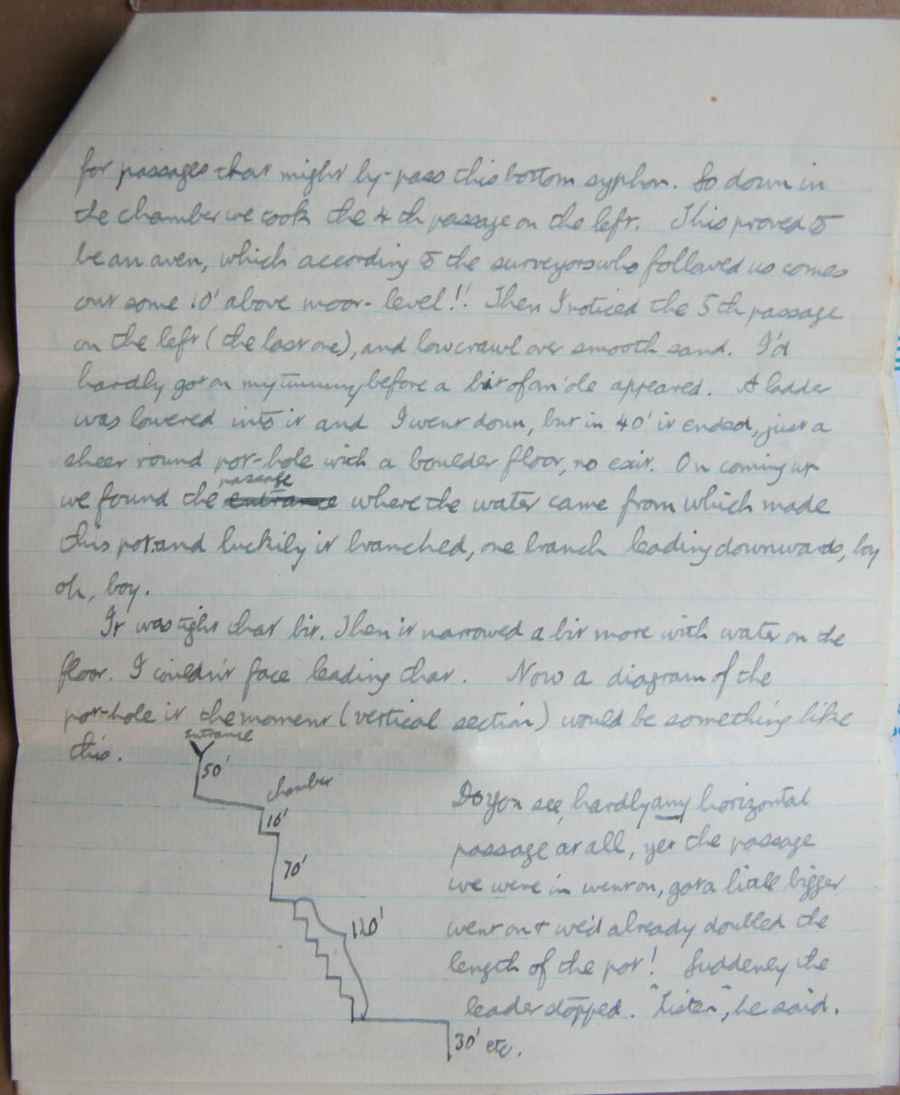 for passages that might by-pass this bottom syphon. So down in
the chamber we took the 4th passage on the left. This proved to
be an aven, which according to the surveyors who followed us comes
out some 10' above moor-level!! Then I noticed the 5th passage
on the left (the last one), and low crawl over smooth sand. I'd
hardly got on my tummy before a bit of an 'ole appeared. A ladder
was lowered into it and I went down, but in 40' it ended, just a
sheer round pot-hole with a boulder floor, no exit. On coming up
we found the entrance passage where the water came from which made
this pot and luckily it branched, one branch leading downwards, boy
oh, boy.
It was tight that bit. Then it narrowed a bit more with water on the
floor. I couldn't face leading that. Now a diagram of the
pot-hole it the moment (vertical section) would be something like
this.
Entrance
50'
chamber
10'
70'
120'
30' etc.
Do you see, hardly any horizontal
passage at all, yet the passage
we were in went on, got a little bigger
went on + we'd already doubled the
length of the pot! Suddenly the
leader stopped. "Listen", he said.